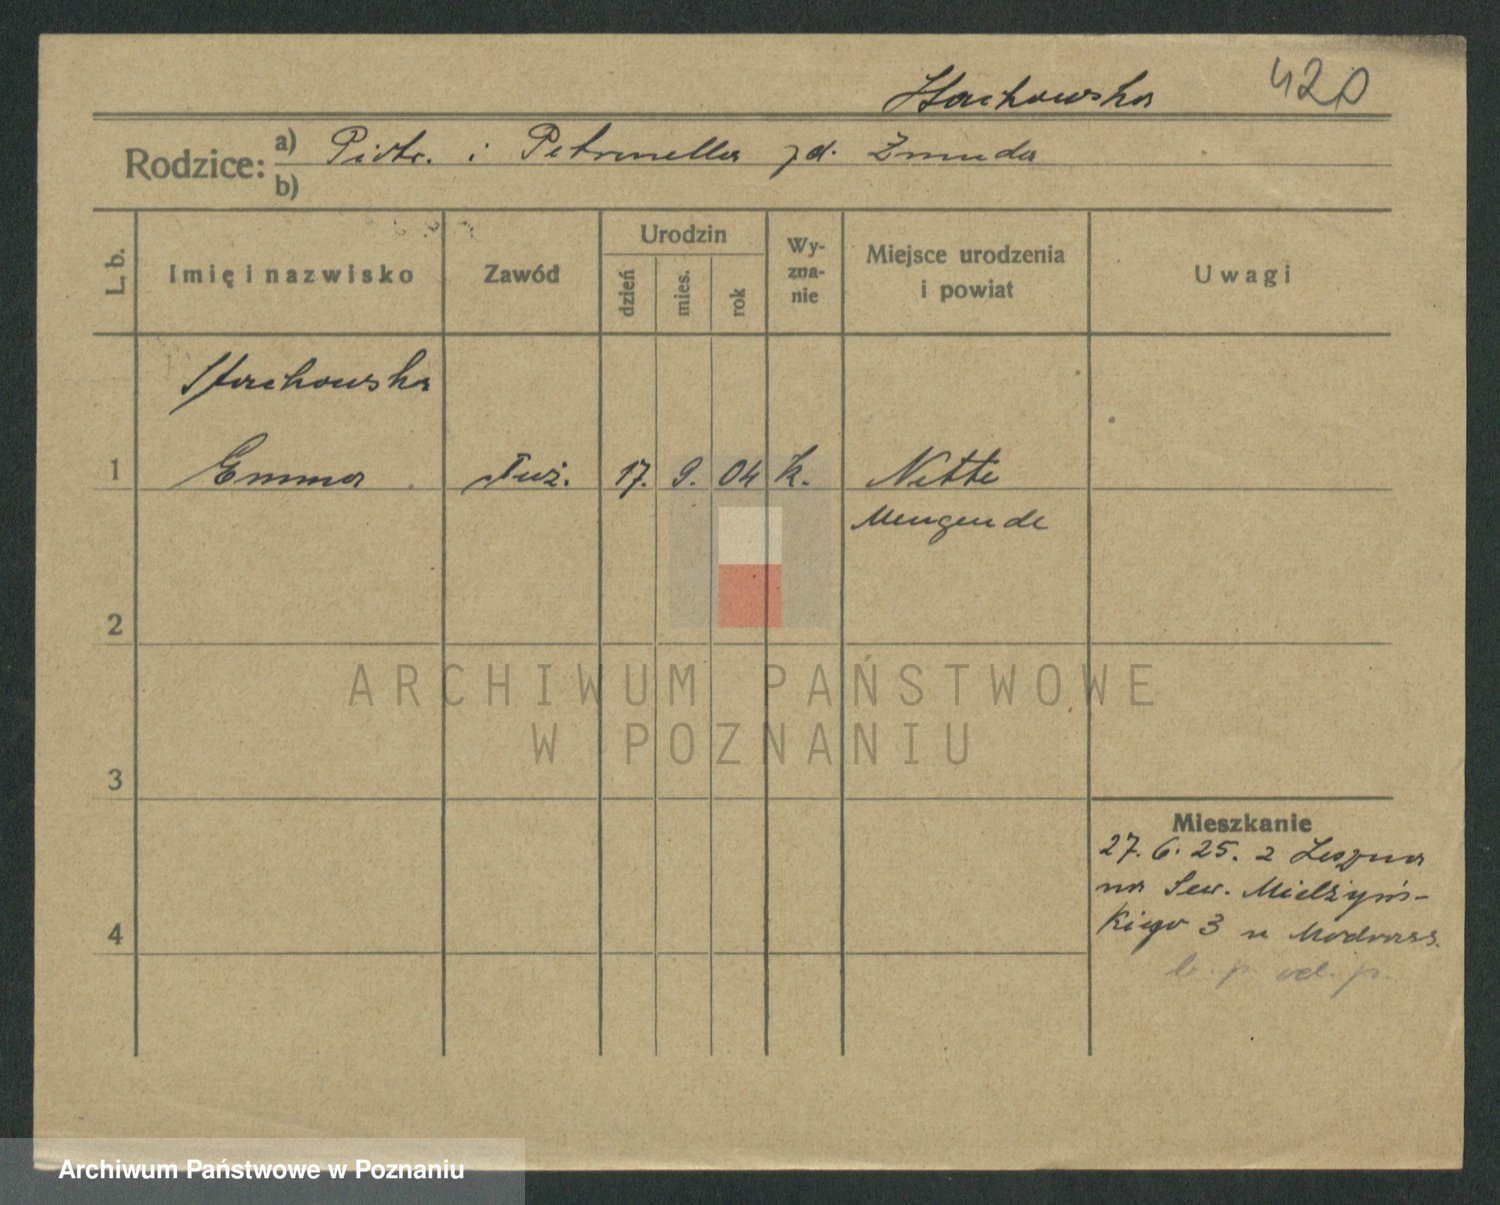 Stachowska 420
Rodzice: a) Piotr. i Petronella zd. Zmuda
b)
L. b. Imię i nazwisko Zawód Urodzin dzień mies. rok Wy-zna-nie Miejsce urodzenia i powiat Uwagi
Stachowska
1 Emma służ. 17. 9. 04 k. Nette
Mengende
2
ARCHIWUM PAŃSTWOWE
W POZNANIU
3
Mieszkanie
27. 6. 25. z Leszna
na Sew. Mielżyńs-
kiego 3 u
4
b. p. od. p.
Archiwum Państwowe w Poznaniu